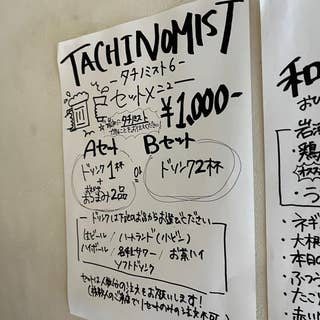 TACHINOMIST
-タチノミスト6-
セットメニュー
¥1,000-
Aセット
ドリンク1杯
+
おつまみ2品
or
Bセット
ドリンク2杯
ドリンクは下記のお品からお選びください
生ビール/ハートランド(小ビン)
ハイボール/各種サワー/お茶ハイ
ソフトドリンク
セットは人数分の注文をお願いします!
和
おひ
岩
・鶏
・う
・ネギ
・大根
・本日の
・ふつう
・たこ
・赤い